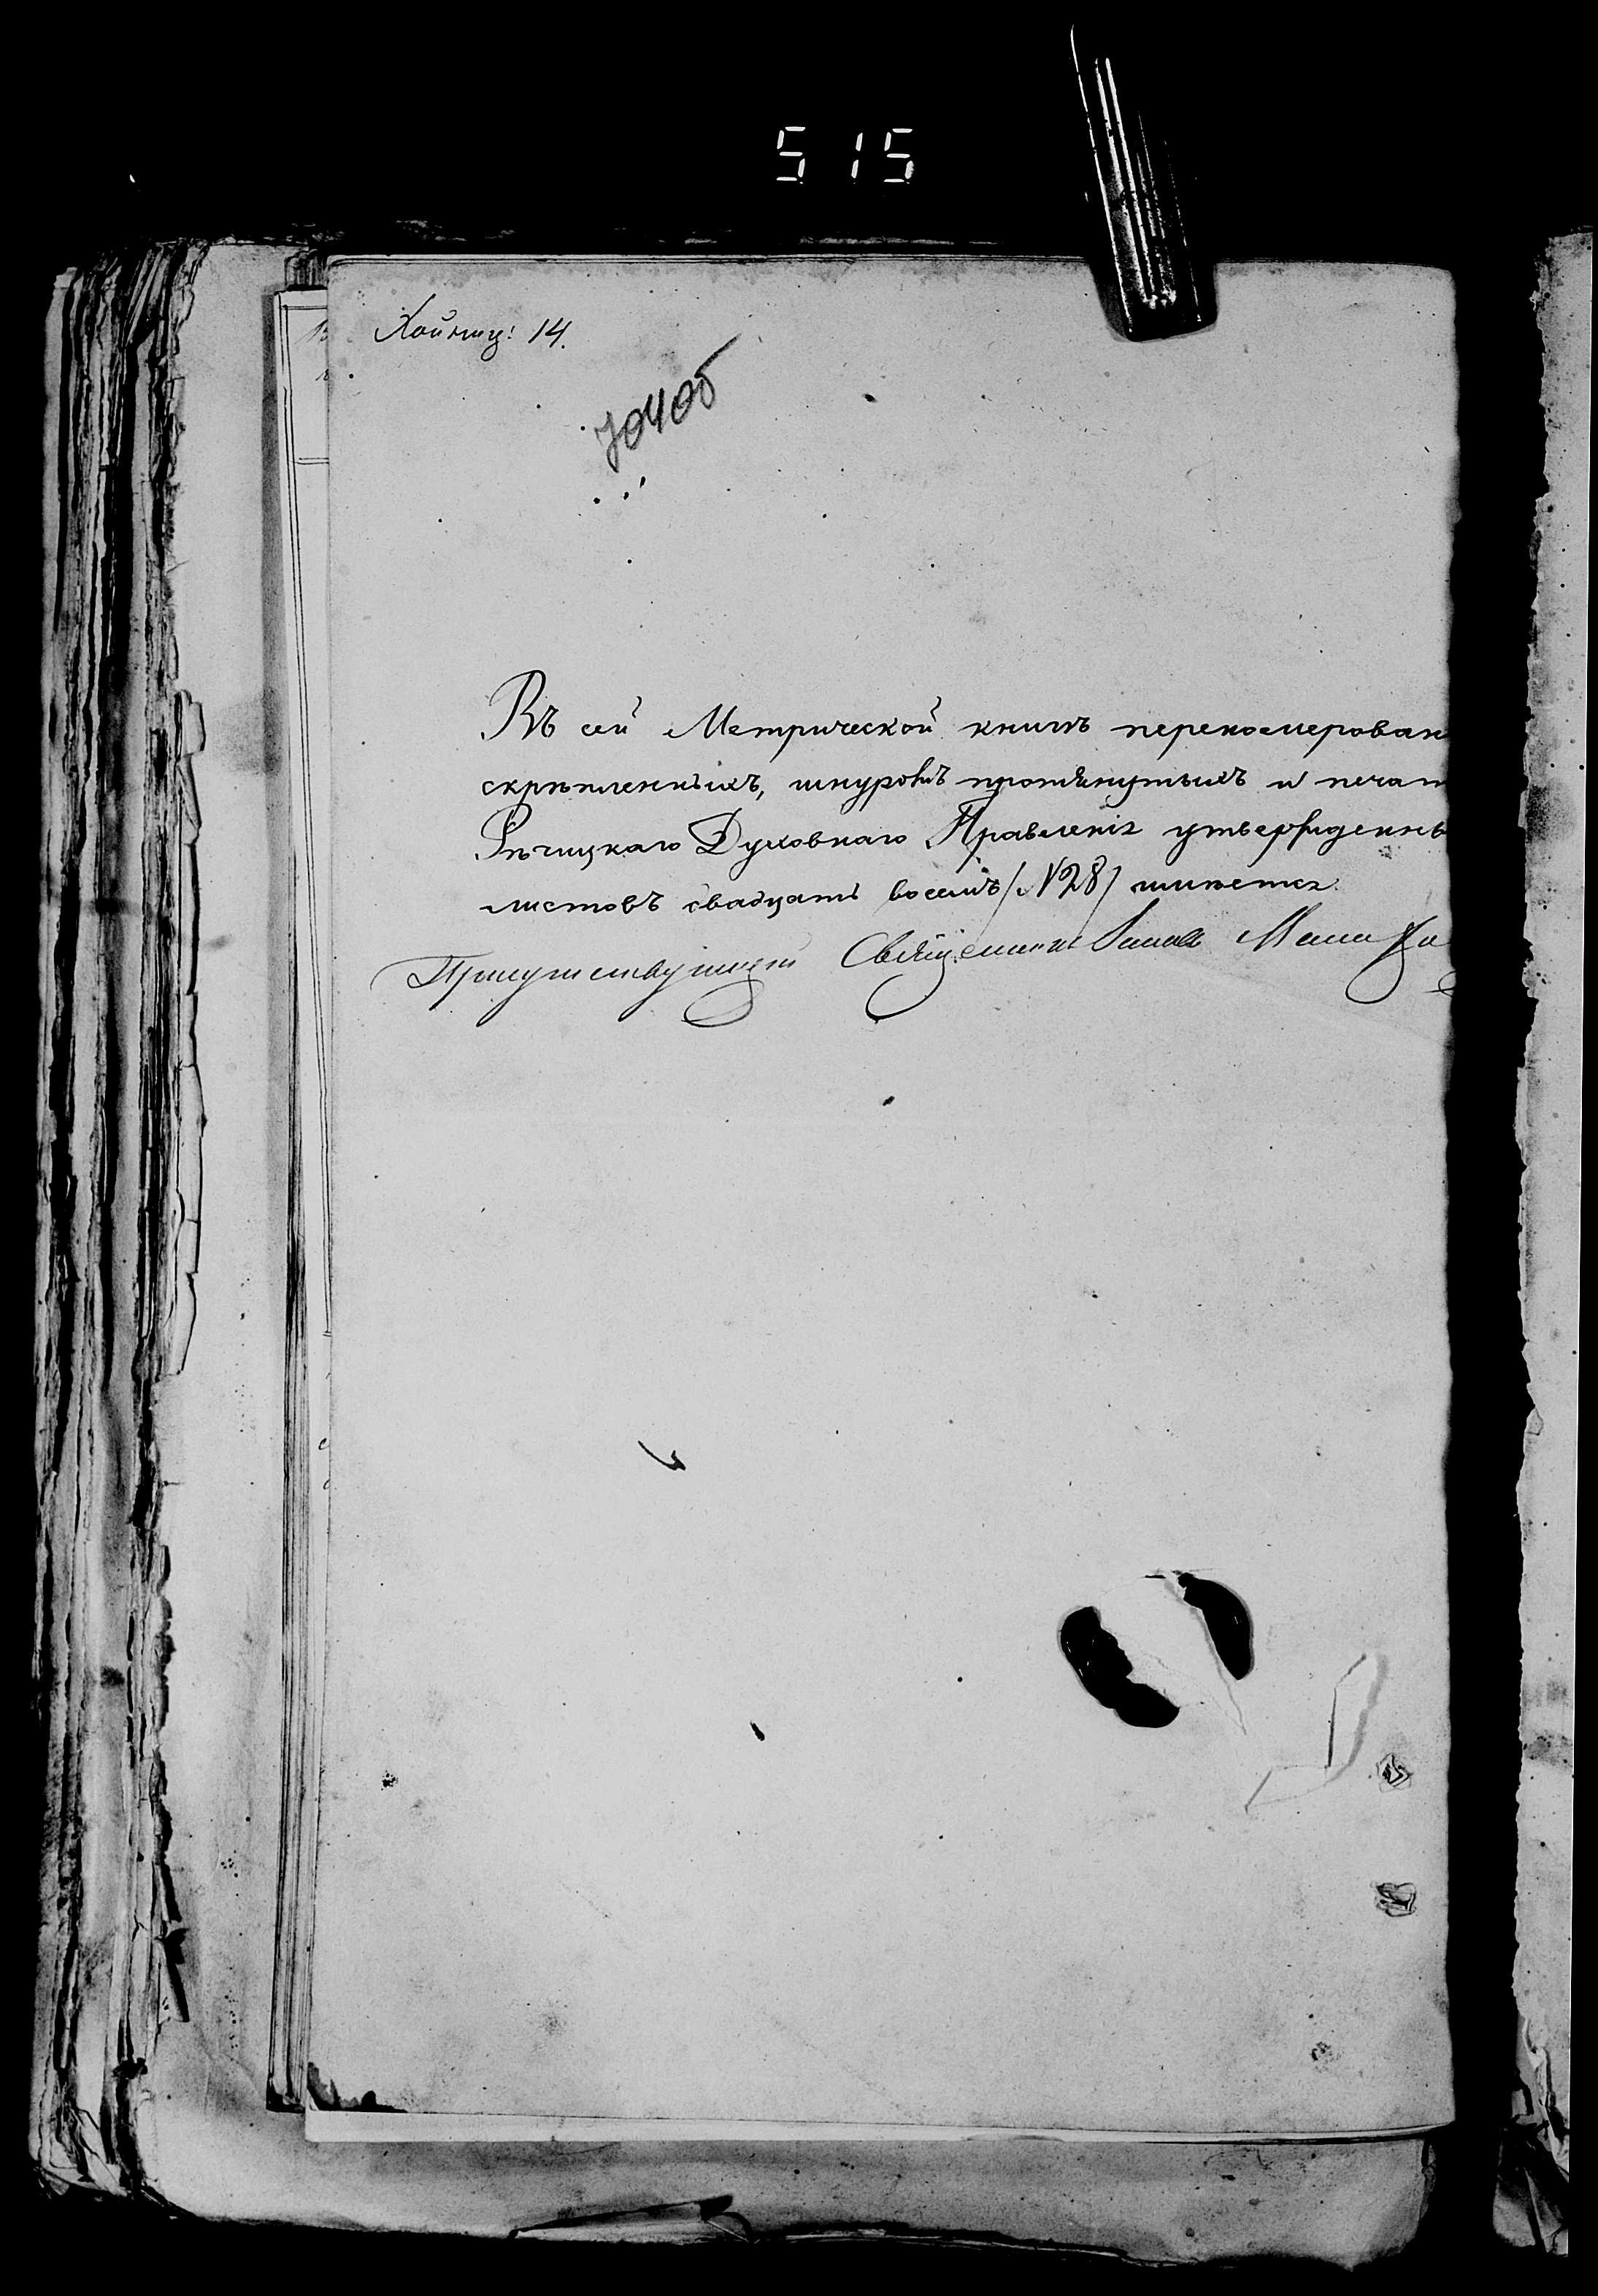 515
Хойниц: 14.
70405
Въ сей Метрической книгѣ переномерован
скрѣпленныхъ, шнуромъ протянутыхъ и печат
Рѣчицкаго Духовнаго Правленія утвержденны
листовъ двадцать восемь /№28/ имѣется.
Присутствующій Священникъ